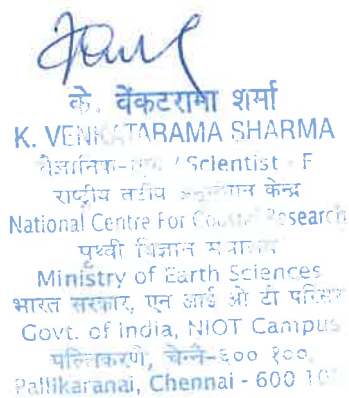 के. वेंकटरामा शर्मा
K. VENKATARAMA SHARMA
वैज्ञानिक- / Scientist - F
राष्ट्रीय तटीय अनुसंधान केन्द्र
National Centre For Coastal Research
पृथ्वी विज्ञान मंत्रालय
Ministry of Earth Sciences
भारत सरकार, एन आई ओ टी परिसर
Govt. of India, NIOT Campus
पल्लिकरणै, चेन्नै-६०० १००.
Pallikaranai, Chennai - 600 10